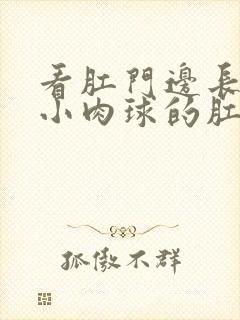 看肛門邊長
小肉球的肛
孤傲不群